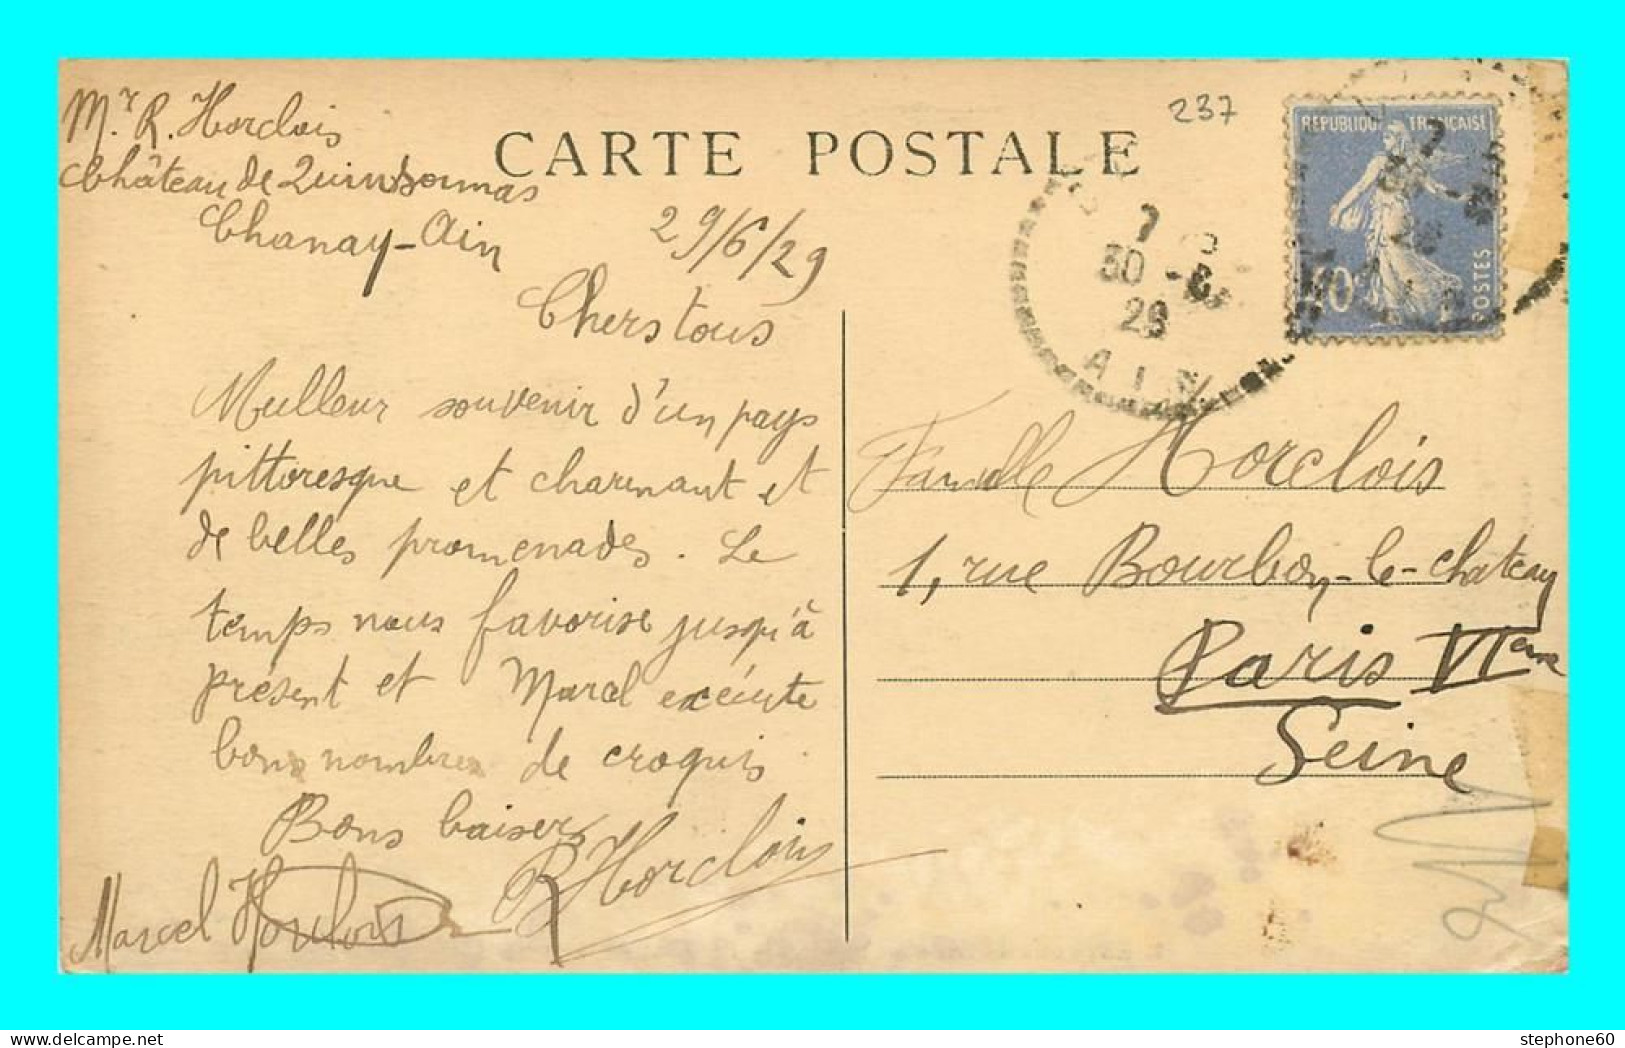 Mr. R. Horclois
Château de
Chanay-Ain
237
CARTE POSTALE
REPUBLIQUE FRANÇAISE
POSTES
40c
7
30 - 6
29
AIN
29/6/29
Chers tous
Meilleur souvenir d'un pays
pittoresque et charmant et
de belles promenades. Le
temps nous favorise jusqu'à
présent et Marcel exécute
bon nombre de croquis
Bons baisers
R Horclois
Marcel Horclois
Famille Horclois
1, rue Bourbon-le-chateau
Paris VIème
Seine
stephone60